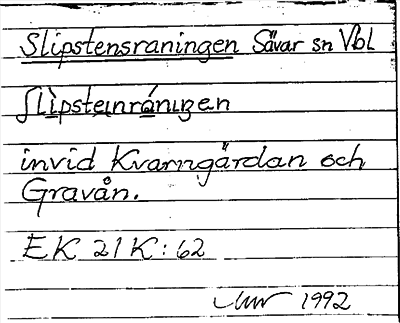 Slipstensraningen Sävar sn Vbl
slìpsteɩnránɩŋen
invid Kvarngärdan och
Gravån.
EK 21K:62
1992